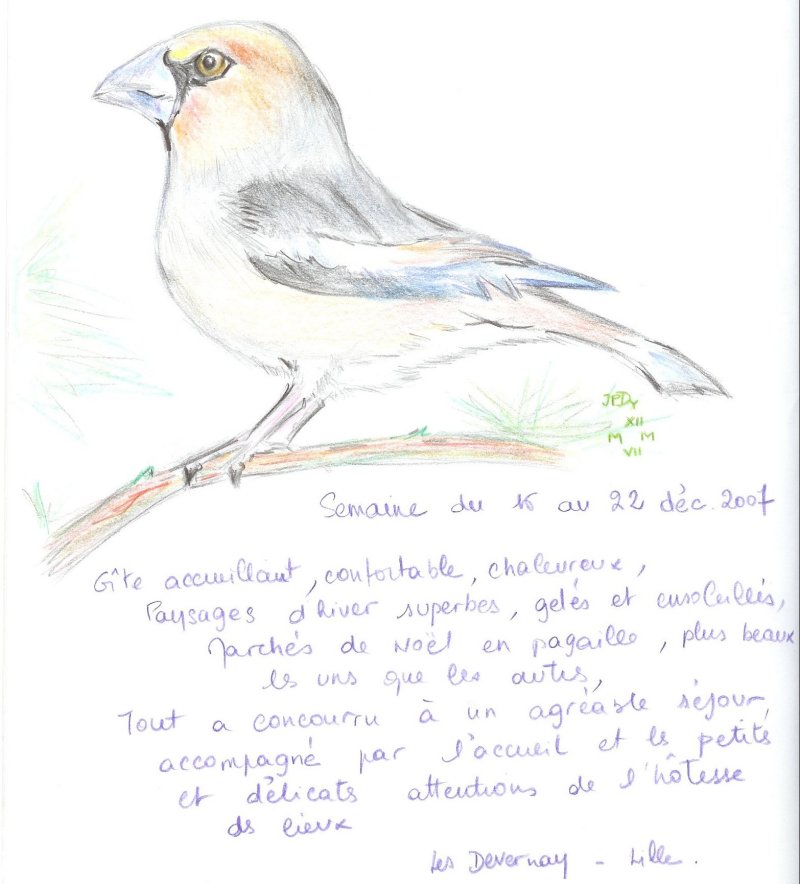 JPDy
XII
M M
VII
Semaine du 16 au 22 déc. 2007
Gîte accueillant, confortable, chaleureux,
Paysages d'hiver superbes, gelés et ensoleillés,
Marchés de Noël en pagaille, plus beaux
les uns que les autres,
Tout a concouru à un agréable séjour,
accompagné par l'accueil et les petits
et délicats attentions de l'hôtesse
des lieux
Les Devernay - Lille.